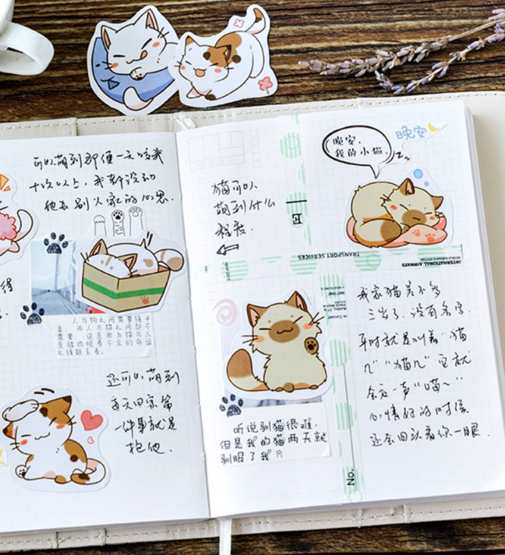 可以萌到那便一天咬我
十次以上，我都没动
他去别人家的心思.
还可以萌到
每天回家第
一件事就是
抱他.
猫可以
萌到什么
程度.
E
TRANSPORT SERVICES
晚安,
我的小猫.
晚安
INTERNATIONAL AIRWAYS
听说驯猫很难,
但是我的猫两天就
驯服了我
我家猫差不多
三岁了.没有名字.
平时就是叫着"猫
儿""猫儿"它就
会应一声"喵~"
心情好的时候
还会回头看你一眼.
No.